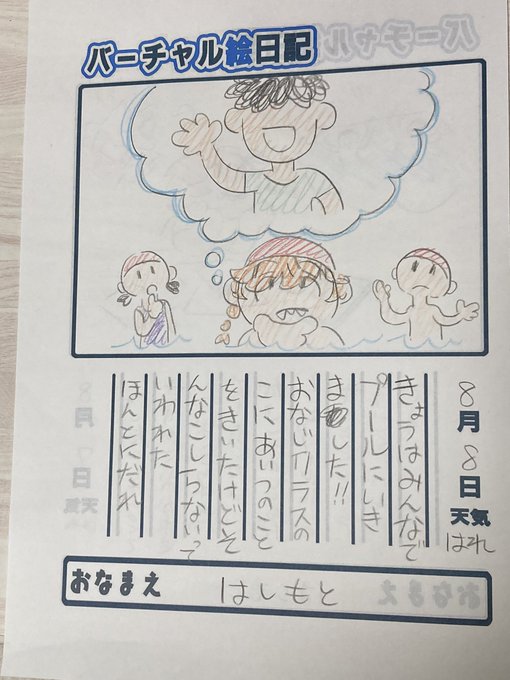 バーチャル絵日記
8月8日
天気
はれ
きょうはみんなで
プールにいき
ました!!
おなじクラスの
こにあいつのこと
をきいたけどそ
んなこしらないって
いわれた
ほんとにだれ
おなまえ はしもと